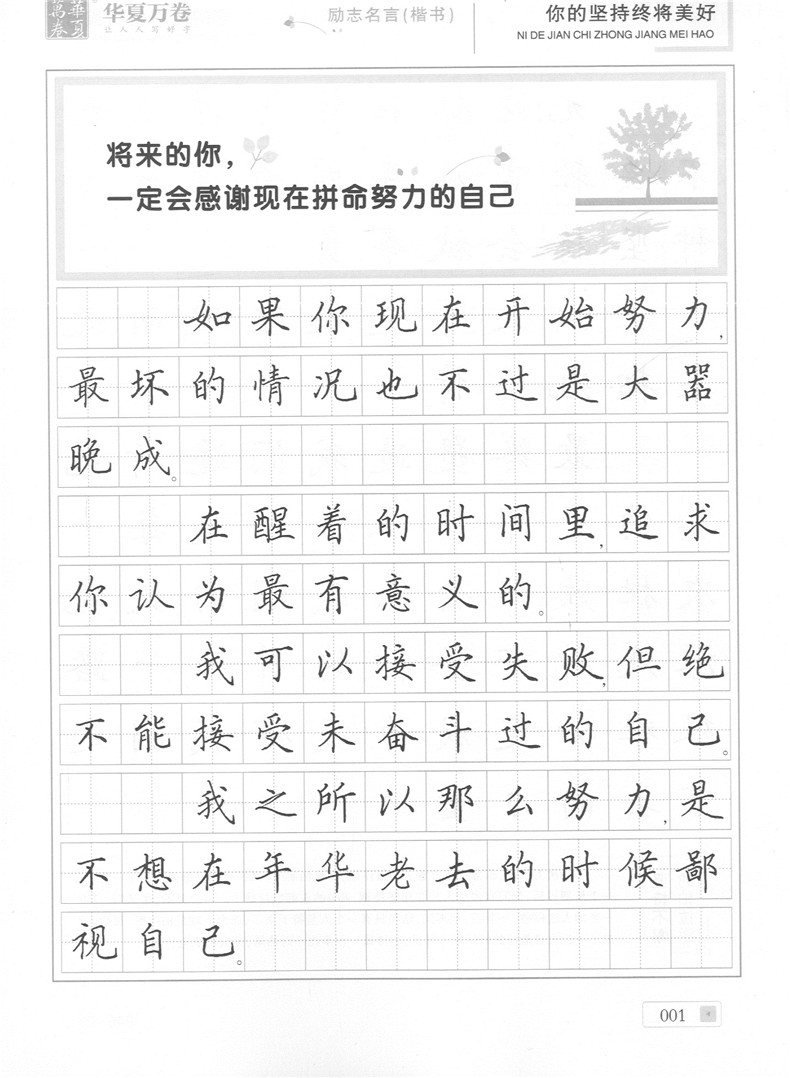 華夏
萬卷
华夏万卷
让人人写好字
励志名言(楷书)
你的坚持终将美好
NI DE JIAN CHI ZHONG JIANG MEI HAO
将来的你，
一定会感谢现在拼命努力的自己
如果你现在开始努力，
最坏的情况也不过是大器
晚成。
在醒着的时间里，追求
你认为最有意义的。
我可以接受失败，但绝
不能接受未奋斗过的自己。
我之所以那么努力，是
不想在年华老去的时候鄙
视自己。
001